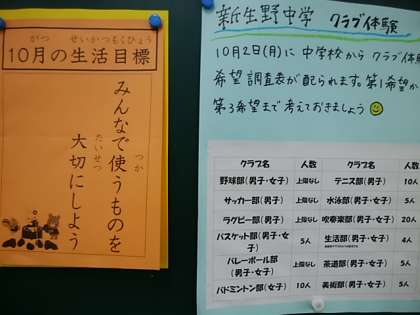 がつ せいかつもくひょう
10月の生活目標
みんなで使うものを
つか
大切にしよう
たいせつ
新生野中学 クラブ体験
10月2日(月)に 中学校から クラブ体験
希望調査表が配られます。第1希望か
第3希望まで考えておきましょう
クラブ名 人数 クラブ名 人数
野球部(男子・女子) 上限なし テニス部(男子) 10人
サッカー部(男子) 上限なし 水泳部(男子) 5人
ラグビー部(男子) 上限なし 吹奏楽部(男子・女子) 20人
バスケット部(男子・女子) 5人 生活部(男子・女子) 4人
バレーボール部(男子・女子) 上限なし 茶道部(男子・女子) 5人
バドミントン部(女子) 10人 美術部(男子・女子) 5人